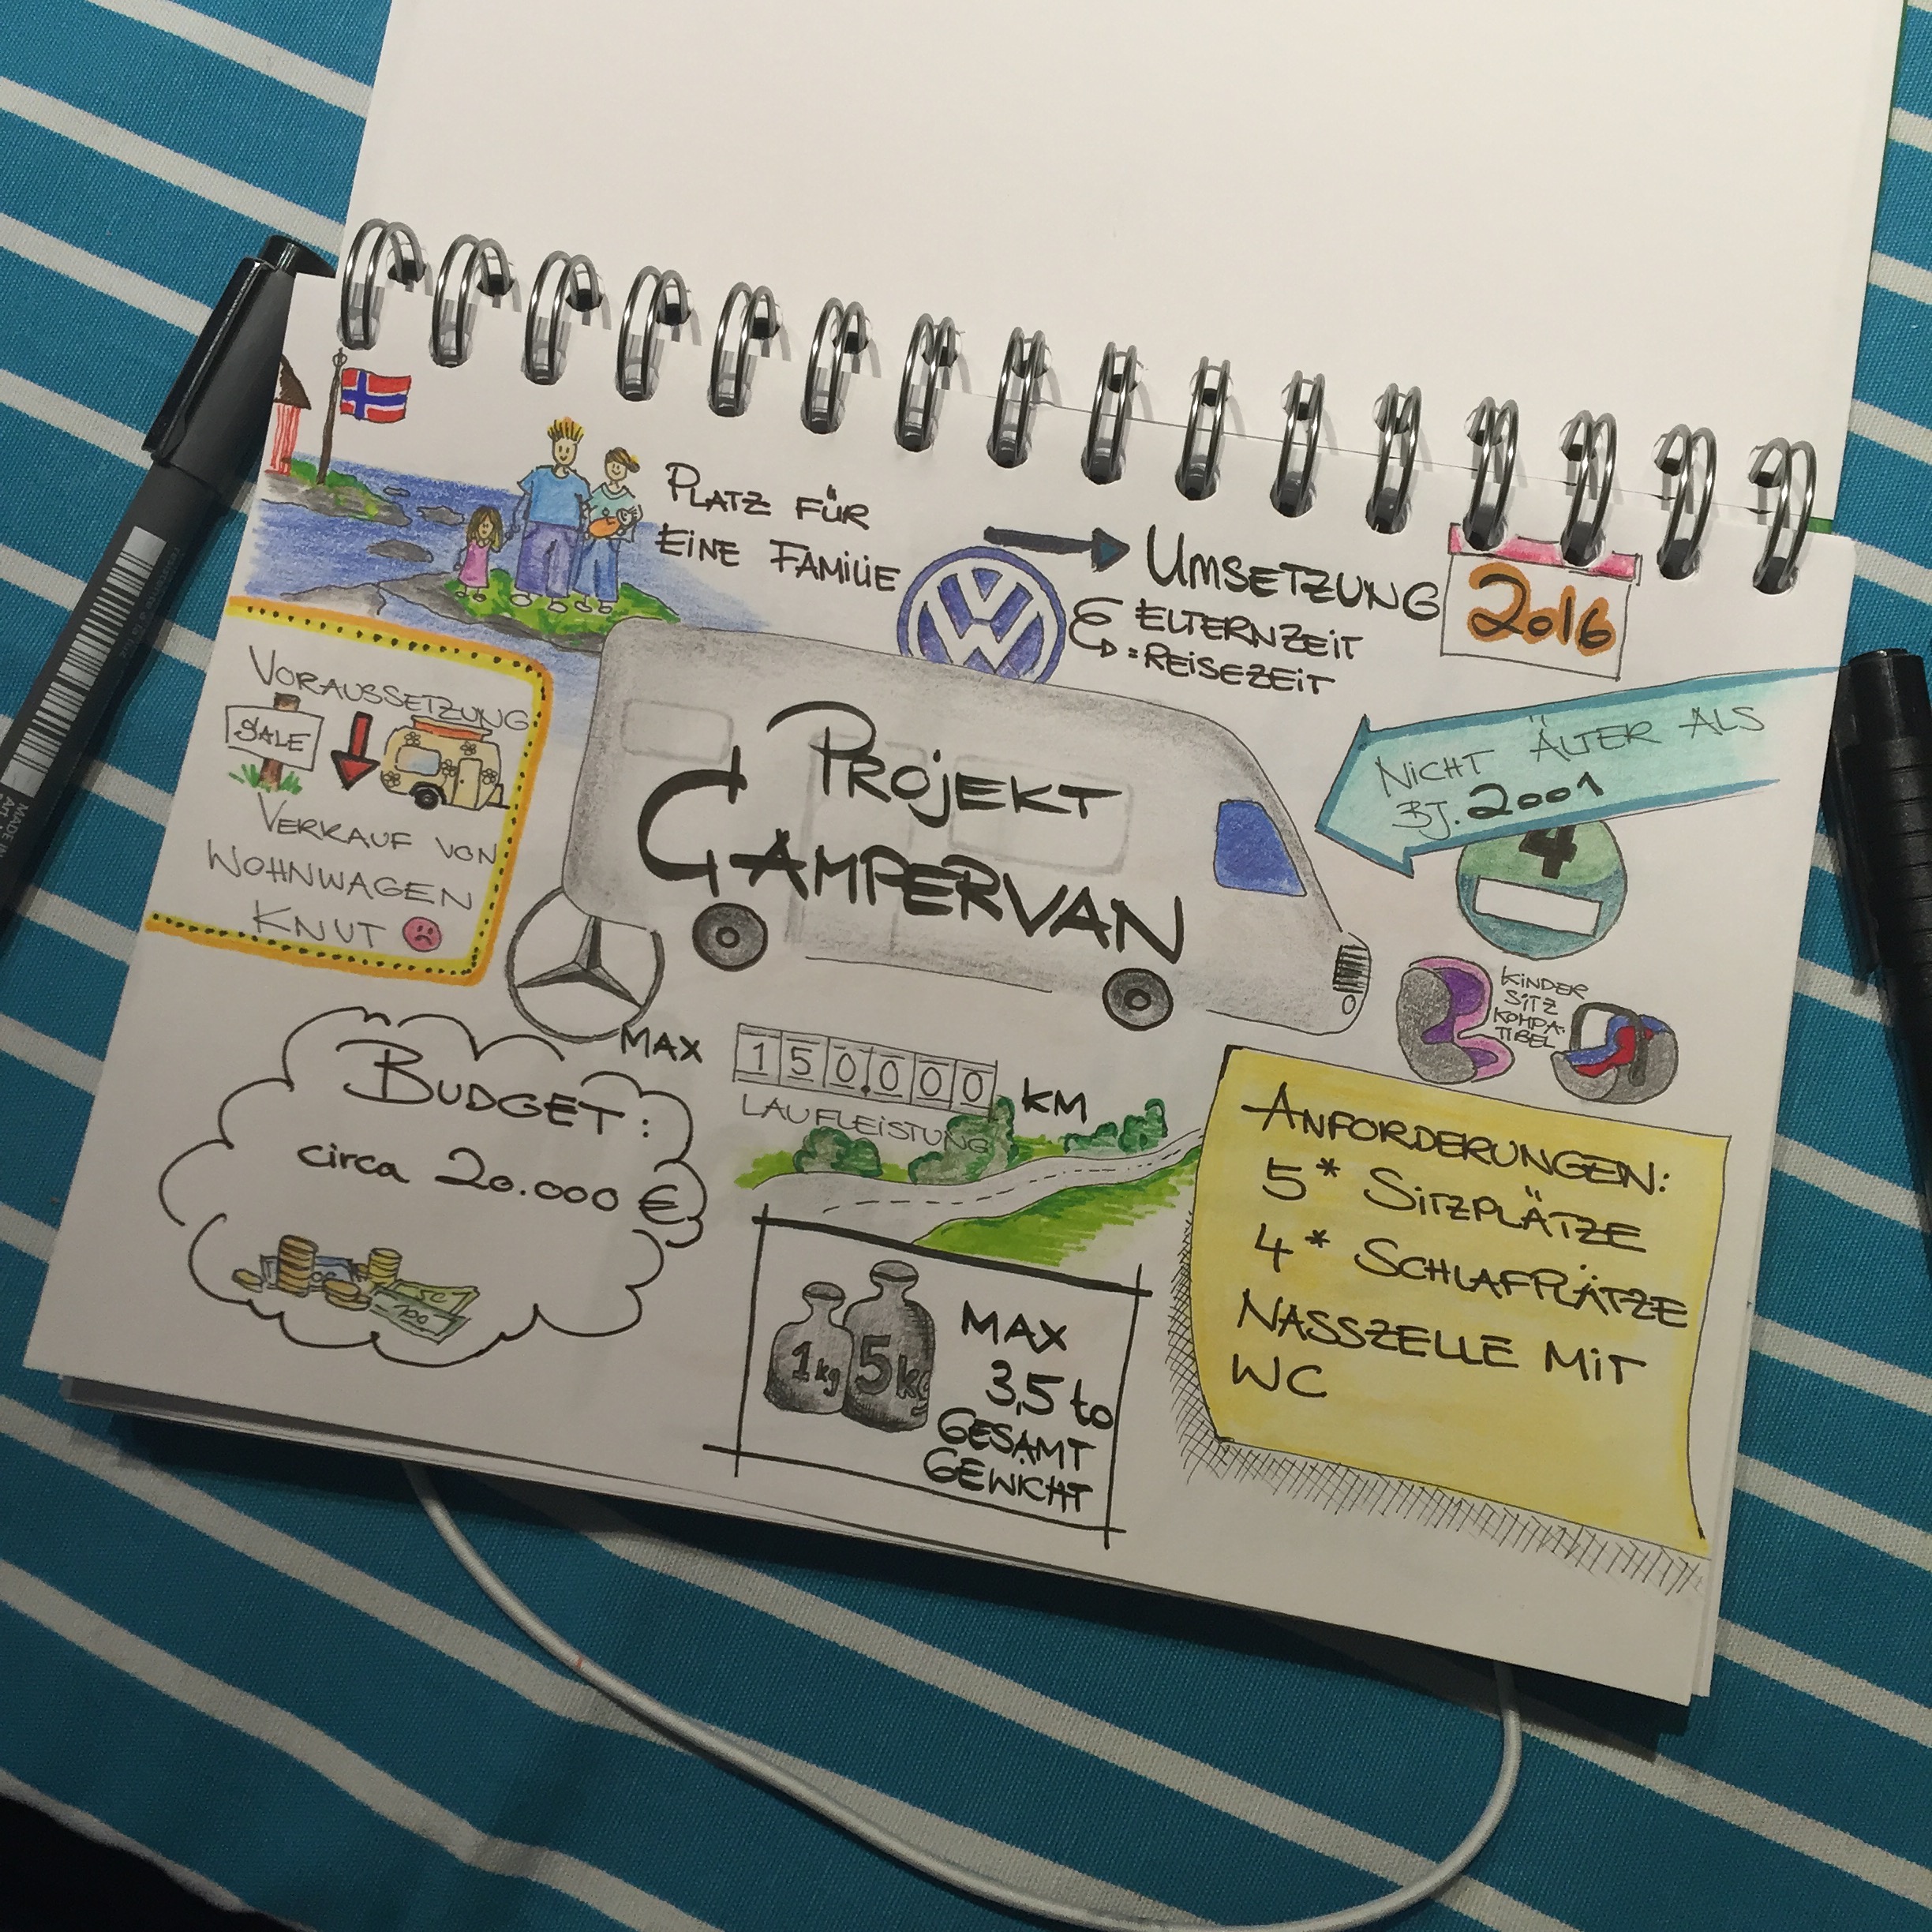 PLATZ FÜR
EINE FAMILIE
UMSETZUNG
2016
ELTERNZEIT
=REISEZEIT
VW
VORAUSSETZUNG
SALE
VERKAUF VON
WOHNWAGEN
KNUT
PROJEKT
CAMPERVAN
NICHT ÄLTER ALS
BJ. 2001
4
KINDER
SITZ
KOMPA-
TIBEL
MAX
150.000
KM
LAUFLEISTUNG
BUDGET:
circa 20.000 €
100
1kg
5kg
MAX
3,5 to
GESAMT
GEWICHT
ANFORDERUNGEN:
5* SITZPLÄTZE
4* SCHLAFPLÄTZE
NASSZELLE MIT
WC